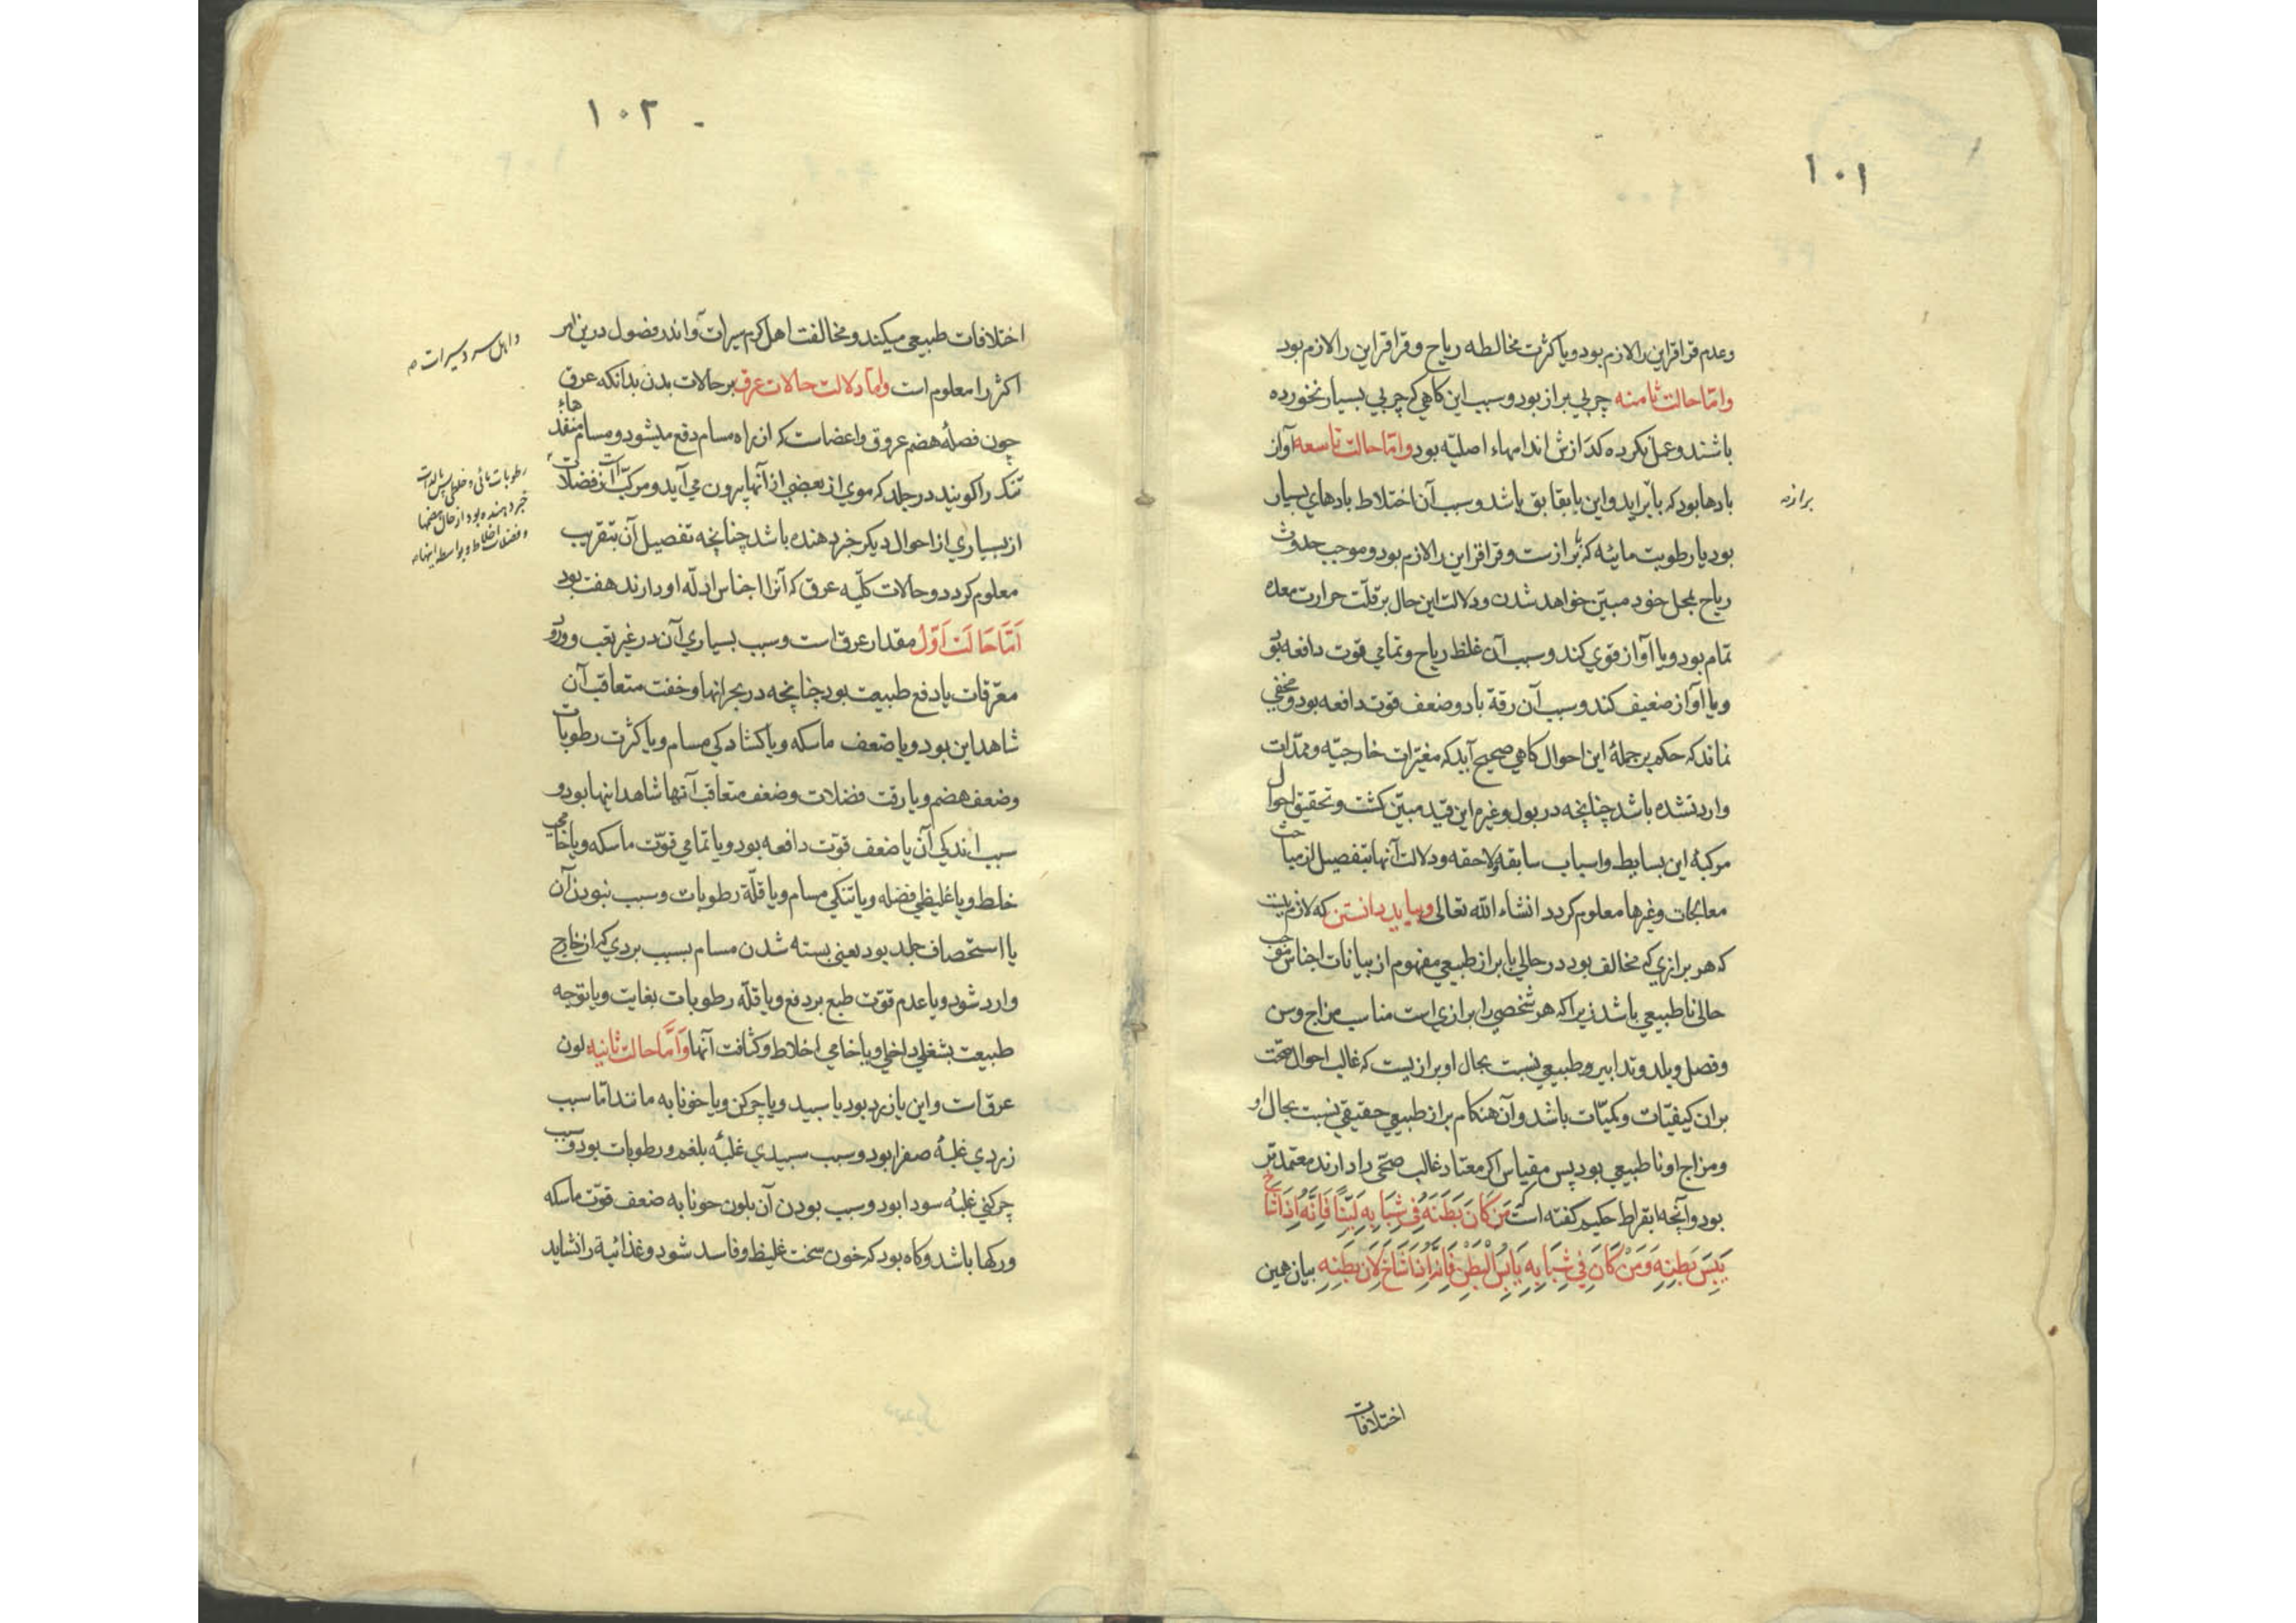 ١٠١
وعدم قراقر این را لازم بود و یا کثرت مخالطه ریاح و قراقر این را لازم بود
واما حالت ثامنه چربی براز بود و سبب این کاهی که چربی بسیار نخورده
باشند و عمل نکرده کدازش اندامهاء اصلیه بود واما حالت تاسعه آواز
بادها بود که با براید و این یا بقابق باشد و سبب آن اختلاط بادهای بسیار
برازه
بود با رطوبت مائیه که با برازست و قراقر این را لازم بود و موجب حدوث
ریاح بمحل خود مبین خواهد شدن و دلالت این حال بر قلت حرارت معده
تمام بود و یا آواز قوی کند و سبب آن غلظ ریاح و تمامی قوت دافعه بود
و یا آواز ضعیف کند و سبب آن رقة باد و ضعف قوت دافعه بود و مخفی
نماند که حکم بر جملهٔ این احوال کاهی صحیح آید که مغیرات خارجیه و ممدات
وارد نشده باشد چنانچه در بول و غیرم این قید مبین کشت و تحقیق احوال
مرکبهٔ این بسایط و اسباب سابقه و لاحقه و دلالت آنها بتفصیل از مباحث
معالجات و غیرها معلوم کردد انشاء الله تعالی و بباید دانستن که لازم نیست
که هر برازی که مخالف بود در حالی با براز طبیعی مفهوم از بیانات اجناس موجب
حالی ناطبیعی باشد زیرا که هر شخصی را برازی است مناسب مزاج و سن
و فصل و بلد و تدابیر و طبیعی نسبت بحال او برازیست که غالب احوال صحت
بران کیفیات و کمیات باشد و آن هنکام براز طبیعی حقیقی نسبت بحال او
و مزاج او ناطبیعی بود پس مقیاس اکر معتاد غالب صحی را دارند معتمدتر
بود و آنچه ابقراط حکیم کفته است که مَن کَانَ بَطنَهُ فِی شَبَابِهِ لَیِّنًا فَاِنَّهُ اِذَا شَاخَ
یَبِسَ بَطنِهِ وَ مَن کَانَ فِی شَبَابِهِ یَابِسَ الْبَطنِ فَاِنَّهُ اِذَا شَاخَ لَانَ بَطنِهِ بیان همین
اختلافات
١٠٢
اختلافات طبیعی میکند و مخالفت اهل کرم سیرات و اندر فضول درین امر
و اهل سرد سیرات
اکثر را معلوم است واما دلالت حالات عرق بر حالات بدن بدانکه عرق
چون فصلهٔ هضم عروق و اعضاست که از راه مسام دفع میشود و مسام منفذهاء
تنک را کویند در جلد که موی از بعضی از آنها بیرون می آید و مرکب است از فضلات
رطوبات مائی و خلطی پس لذات
خبر دهنده بود از حال هضمها
و فضلات اخلاط و بواسطه اینها
از بسیاری از احوال دیکر خبر دهنده باشد چنانچه تفصیل آن بتقریب
معلوم کردد و حالات کلیه عرق که آنرا اجناس ادله او دارند هفت بود
اَمَّا حَالَت اَوَّلُ مقدار عرق است و سبب بسیاری آن در غیر تعب و ورود
معرقات یا دفع طبیعت بود چنانچه در بحرانها و خفت متعاقب آن
شاهد این بود و یا ضعف ماسکه و یا کشادکی مسام و یا کثرت رطوبات
و ضعف هضم و یا رقت فضلات و ضعف متعاقب آنها شاهد اینها بود و
سبب اندکی آن یا ضعف قوت دافعه بود و یا تمامی قوت ماسکه و یا خامی
خلط و یا غلیظی فضله و یا تنکی مسام و یا قلة رطوبات و سبب نبودن آن
یا استحصاف جلد بود یعنی بسته شدن مسام بسبب بردی که از خارج
وارد شود و یا عدم قوت طبع بر دفع و یا قلة رطوبات بغایت و یا توجه
طبیعت بشغل داخلی و یا خامی اخلاط و کثافت آنها وَاَمَّا حالت ثانیه لون
عرق است و این یا زرد بود یا سپید و یا چرکن و یا خونابه مانند اما سبب
زردی غلبهٔ صفرا بود و سبب سپیدی غلبهٔ بلغم و رطوبات بود و سبب
چرکنی غلبهٔ سودا بود و سبب بودن آن بلون خونابه ضعف قوت ماسکه
ورکها باشد و کاه بود که خون سخت غلیظ و فاسد شود و غذائیة را نشاید